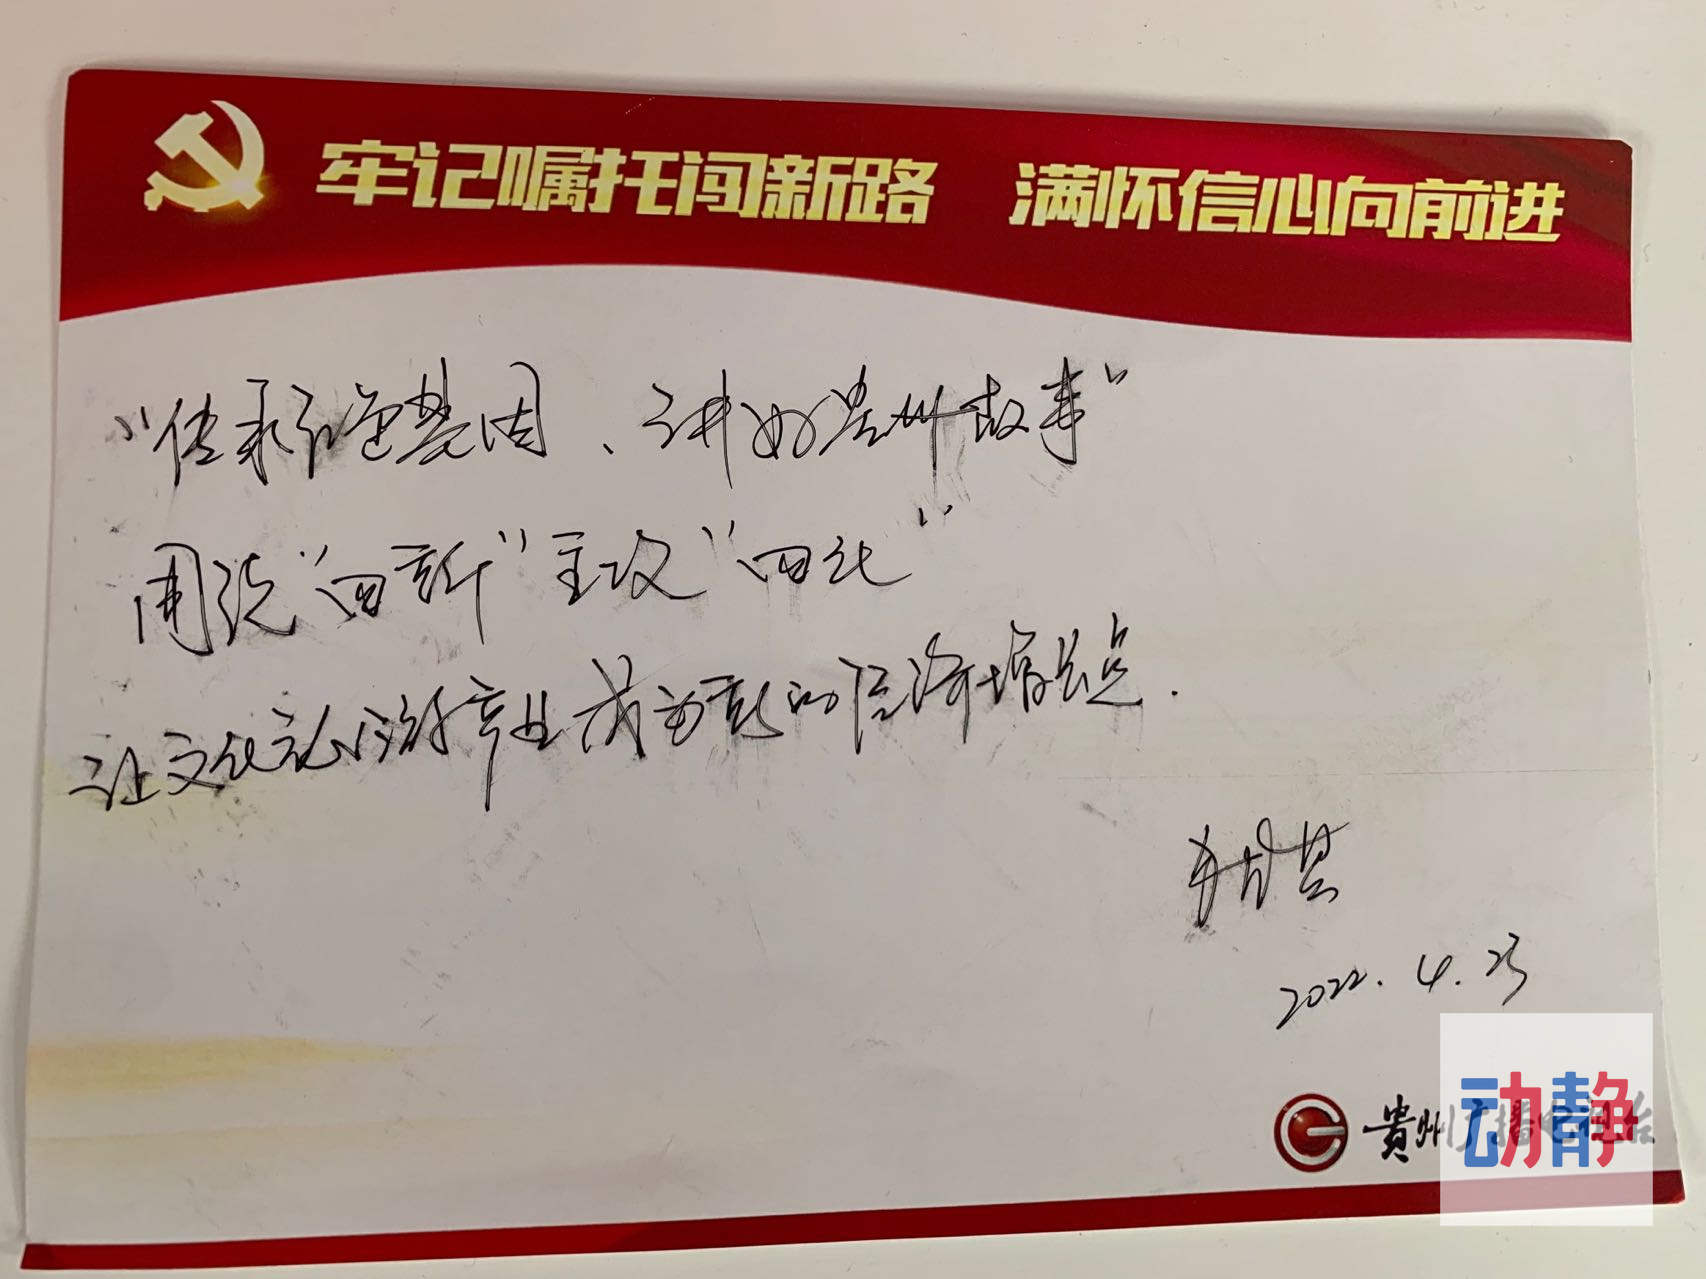 牢记嘱托闯新路 满怀信心向前进
“传承红色基因、讲好贵州故事”
围绕“四新”主攻“四化”
让文化旅游产业成为新的经济增长点.
2022.4.23
贵州广播电视台
动静